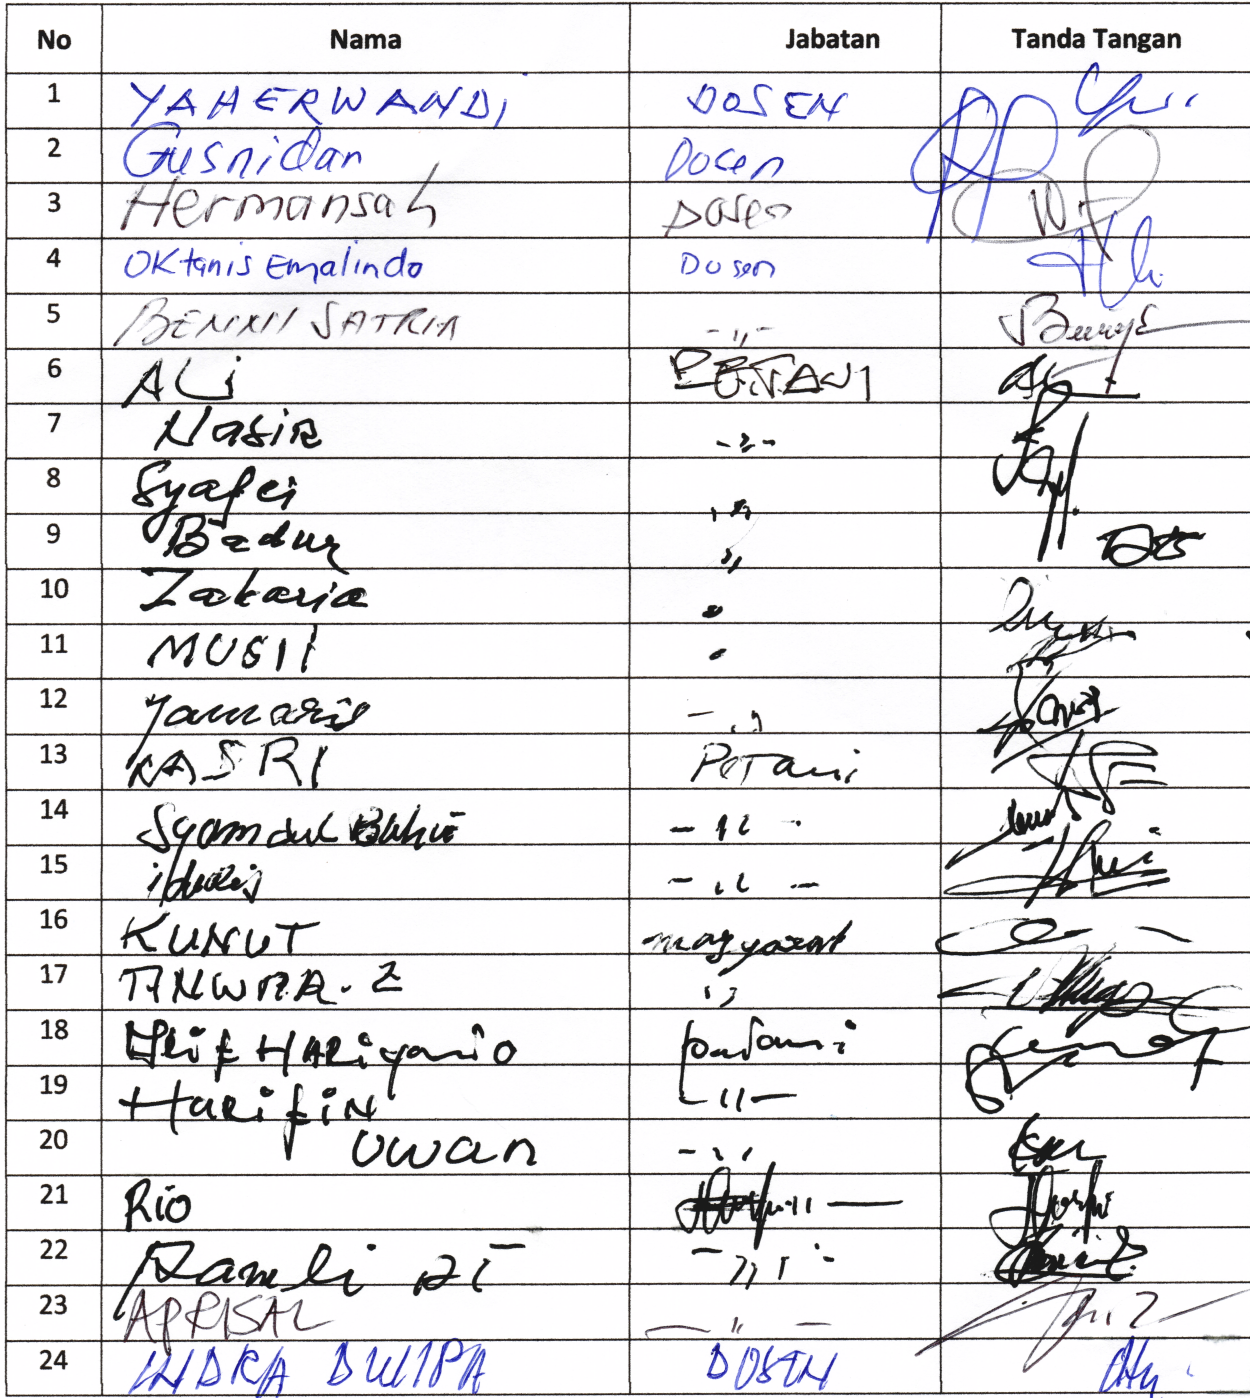 No Nama Jabatan Tanda Tangan
1 YAHERWANDI DOSEN
2 Gusnidan Dosen
3 Hermansah Dosen
4 OKtanis Emalindo Dosen
5 BENNI SATRIA -"-
6 ALi PETANI
7 Nasir -"-
8 Syafei "
9 Badur "
10 Zakaria "
11 MUSIl "
12 Jamaris - "
13 NASRI PeTani
14 Syamsul Bahri - " -
15 idris - " -
16 KUNUT masyarakat
17 "
18 HARiyanto
19 HarifiN - " -
20 UWan - "
21 Rio " -
22 Ramli - " -
23 APRISAL - " -
24 INDRA DWIPA DOSEN